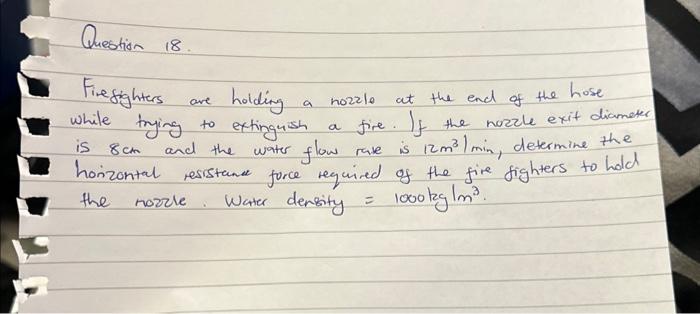 Question 18.
Firefighters are holding a nozzle at the end of the hose
while trying to extinguish a fire. If the nozzle exit diameter
is 8cm and the water flow rate is 12m³/min, determine the
horizontal resistance force required of the fire fighters to hold
the nozzle. Water density = 1000kg/m³.